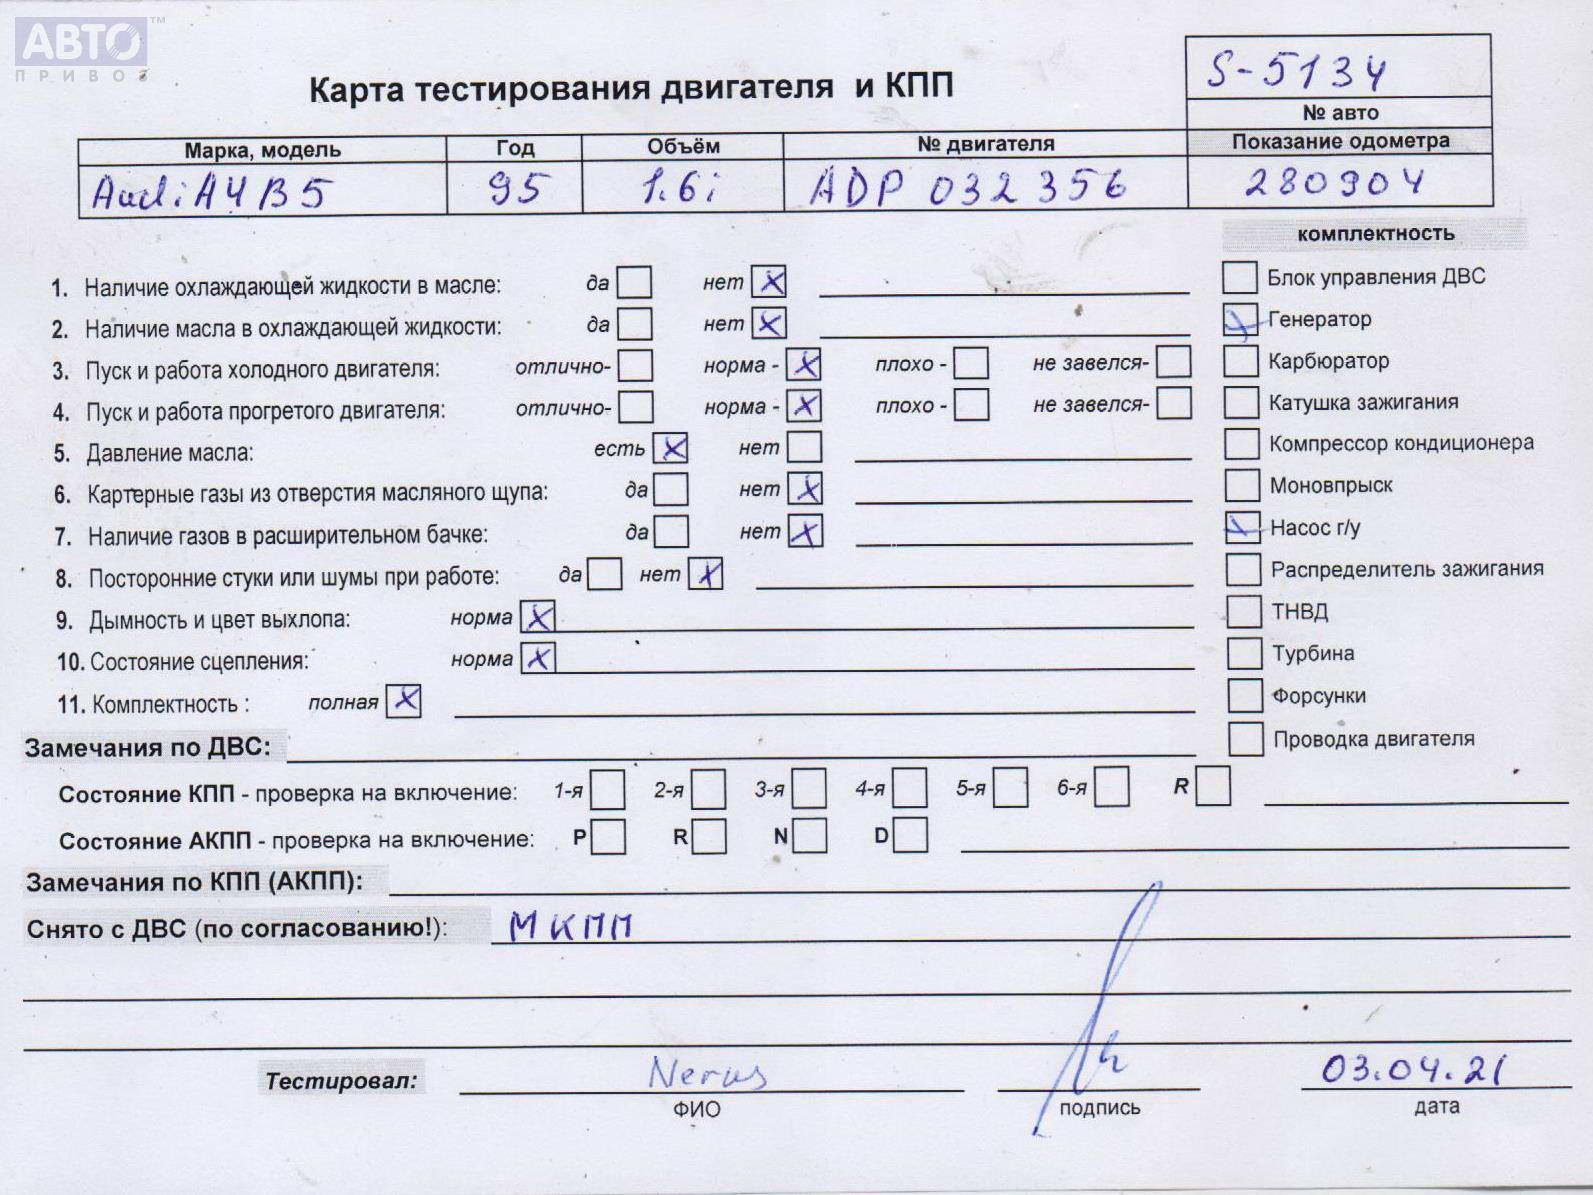 АВТО™
ПРИВОЗ
Карта тестирования двигателя и КПП
S-5134
№ авто
Марка, модель Год Объём № двигателя Показание одометра
Audi A4 B5 95 1.6i ADP 032356 280904
комплектность
1. Наличие охлаждающей жидкости в масле: да нет X
Блок управления ДВС
2. Наличие масла в охлаждающей жидкости: да нет X
Генератор
3. Пуск и работа холодного двигателя: отлично- норма - X плохо - не завелся-
Карбюратор
4. Пуск и работа прогретого двигателя: отлично- норма - X плохо - не завелся-
Катушка зажигания
5. Давление масла: есть X нет
Компрессор кондиционера
6. Картерные газы из отверстия масляного щупа: да нет X
Моновпрыск
7. Наличие газов в расширительном бачке: да нет X
Насос г/у
8. Посторонние стуки или шумы при работе: да нет X
Распределитель зажигания
9. Дымность и цвет выхлопа: норма X
ТНВД
10. Состояние сцепления: норма X
Турбина
11. Комплектность : полная X
Форсунки
Замечания по ДВС:
Проводка двигателя
Состояние КПП - проверка на включение: 1-я 2-я 3-я 4-я 5-я 6-я R
Состояние АКПП - проверка на включение: P R N D
Замечания по КПП (АКПП):
Снято с ДВС (по согласованию!): МКПП
Тестировал: Nerus 03.04.21
ФИО подпись дата